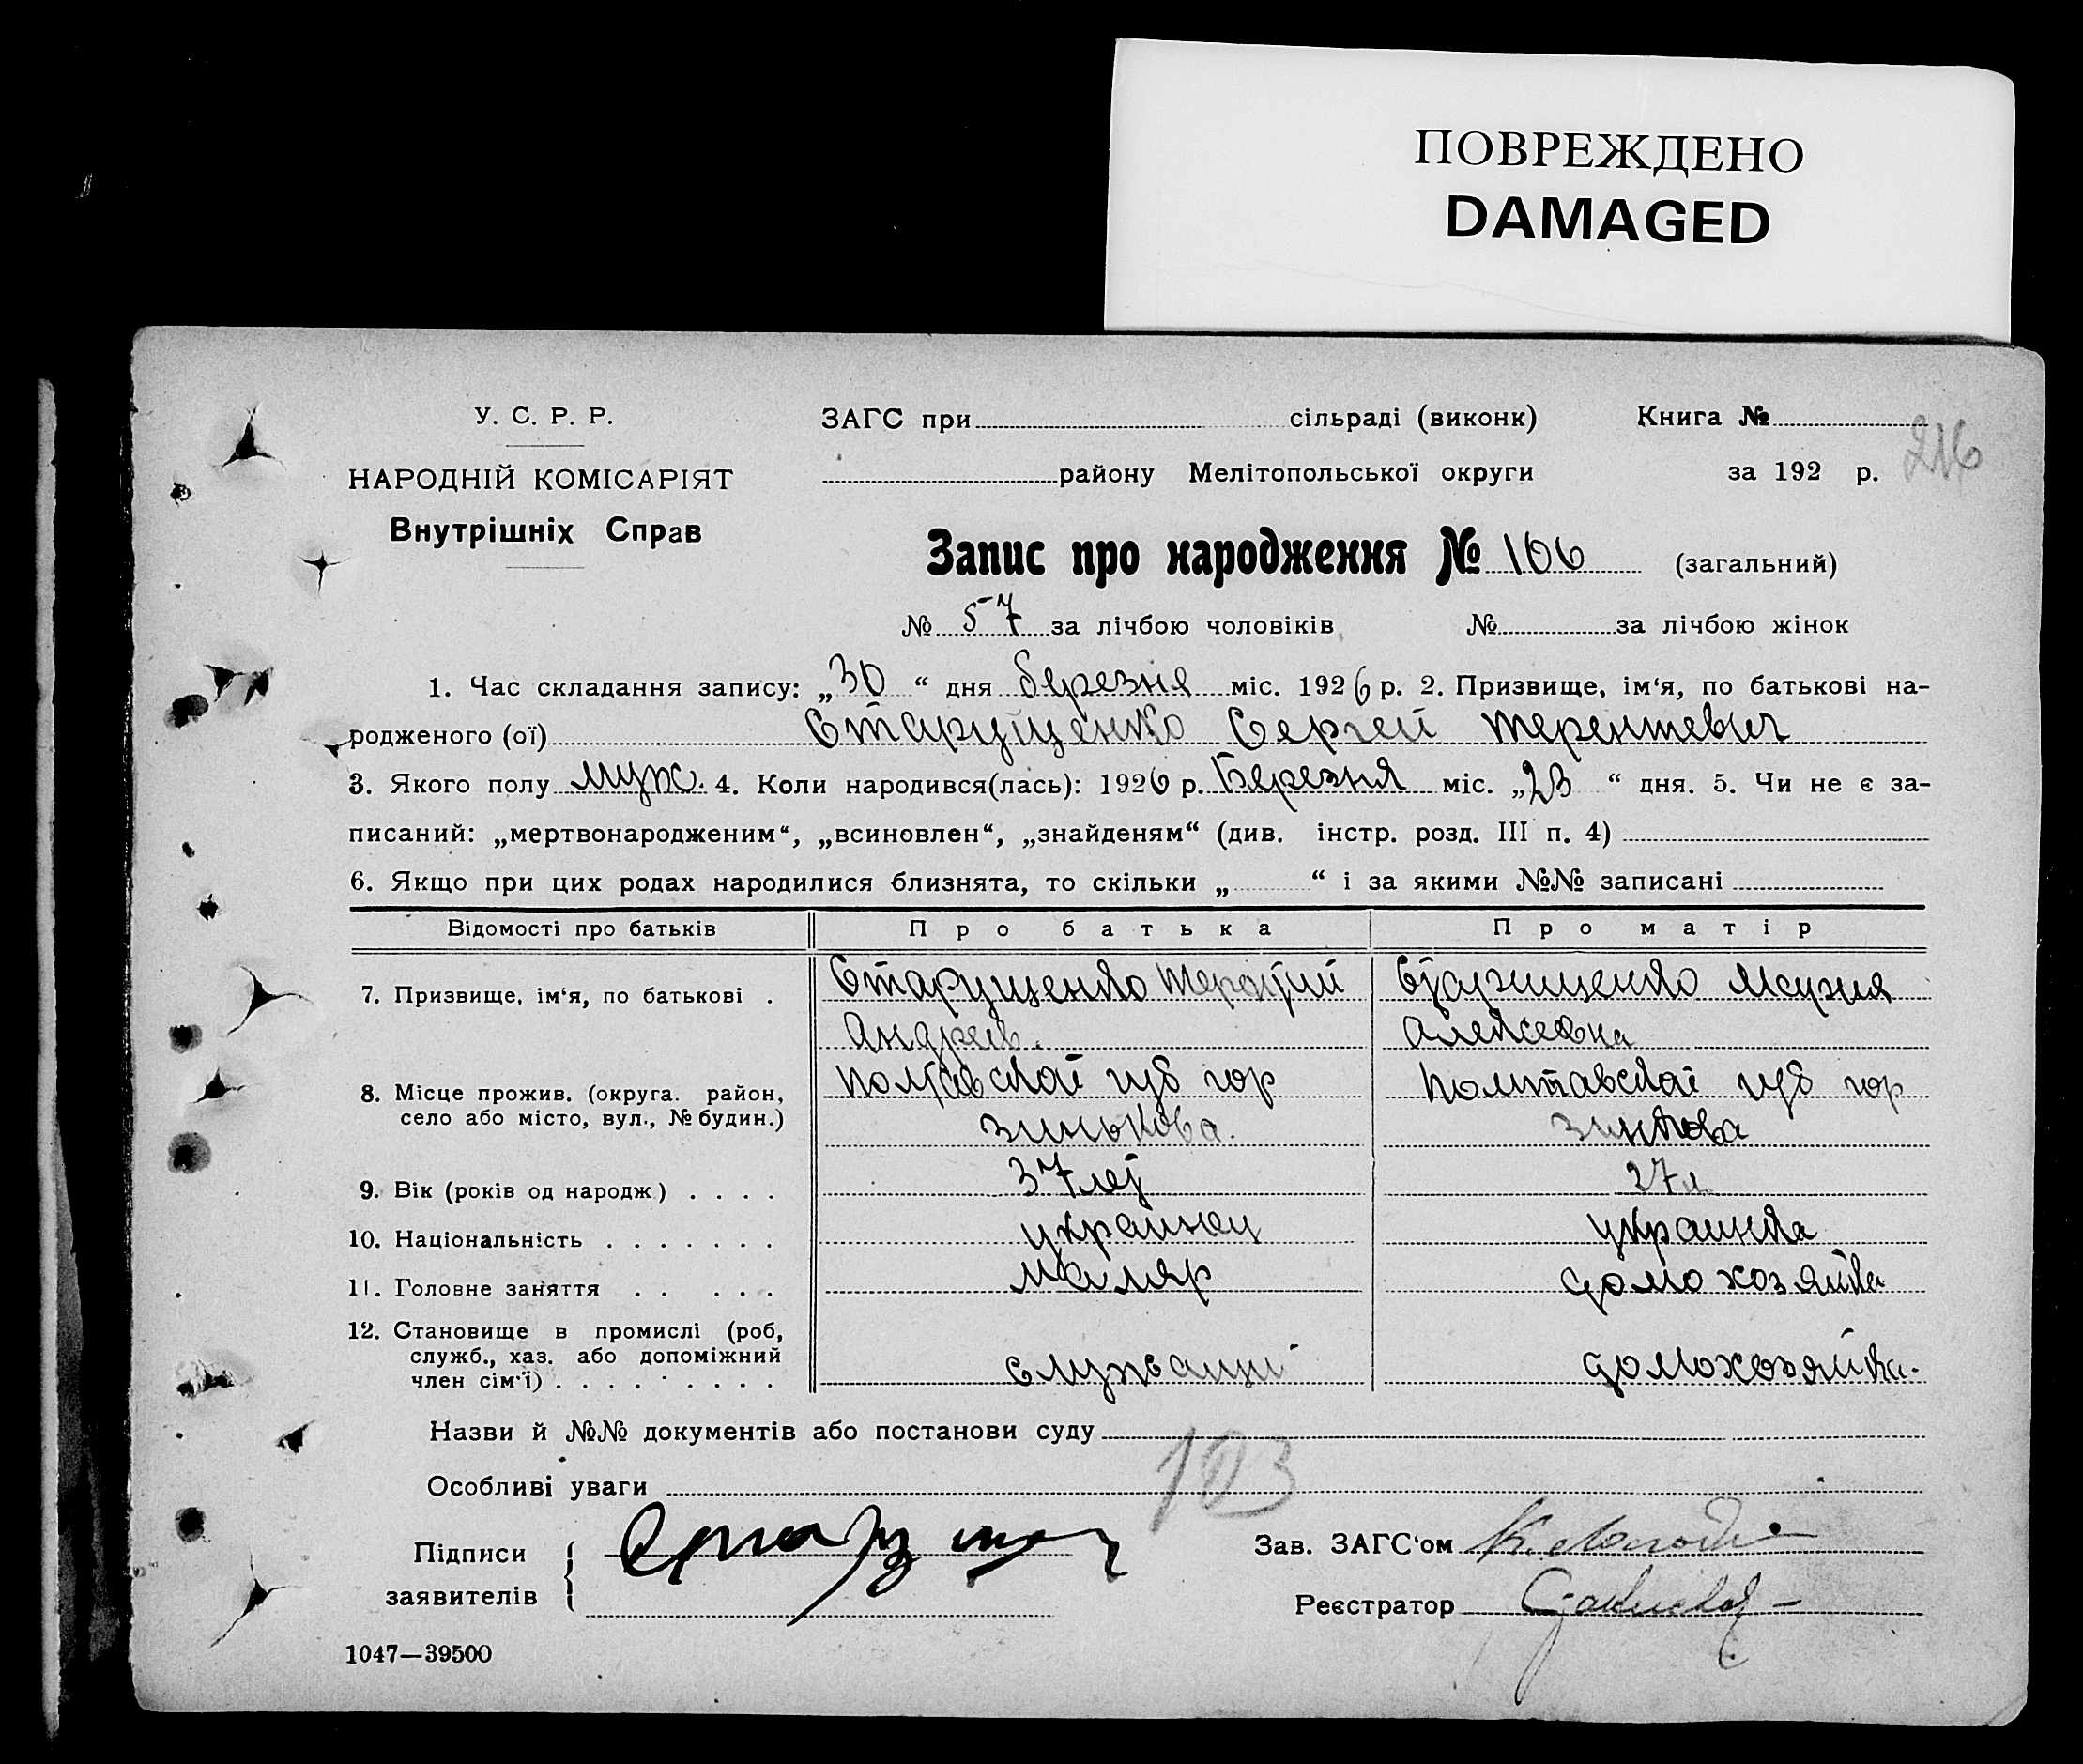 ПОВРЕЖДЕНО
DAMAGED
У. С. Р. Р.
НАРОДНІЙ КОМІСАРІЯТ
Внутрішніх Справ
ЗАГС при сільраді (виконк) Книга №
району Мелітопольської округи за 192 р.
216
Запис про народження № 106 (загальний)
№ 57 за лічбою чоловіків № за лічбою жінок
1. Час складання запису: „30“ дня березня міс. 1926 р. 2. Призвище, ім‘я, по батькові на-
родженого (ої) Старущенко Сергей Терентевич
3. Якого полу муж. 4. Коли народився(лась): 1926 р. Березня міс. „23“ дня. 5. Чи не є за-
писаний: „мертвонародженим“, „всиновлен“, „знайденям“ (див. інстр. розд. III п. 4)
6. Якщо при цих родах народилися близнята, то скільки „ “ і за якими №№ записані
Відомості про батьків Про батька Про матір
7. Призвище, ім‘я, по батькові . Старущенко Старущенко Мария
Андреев. Алексеевна
8. Місце прожив. (округа. район, село або місто, вул., № будин.) Полтавскої губ гор Полтавскої губ гор
Зинькова. Зинкова
9. Вік (років од народж) . . . . 37 лет 27 л.
10. Національність . . . . . . . украинец украинка
11. Головне заняття . . . . . маляр домохозяйка
12. Становище в промислі (роб,
служб., хаз. або допоміжний
член сім‘ї) . . . . . . . . . служащий домохозяйка.
Назви й №№ документів або постанови суду
103
Особливі уваги
Підписи
заявителів
Зав. ЗАГС‘ом
Реєстратор
1047—39500